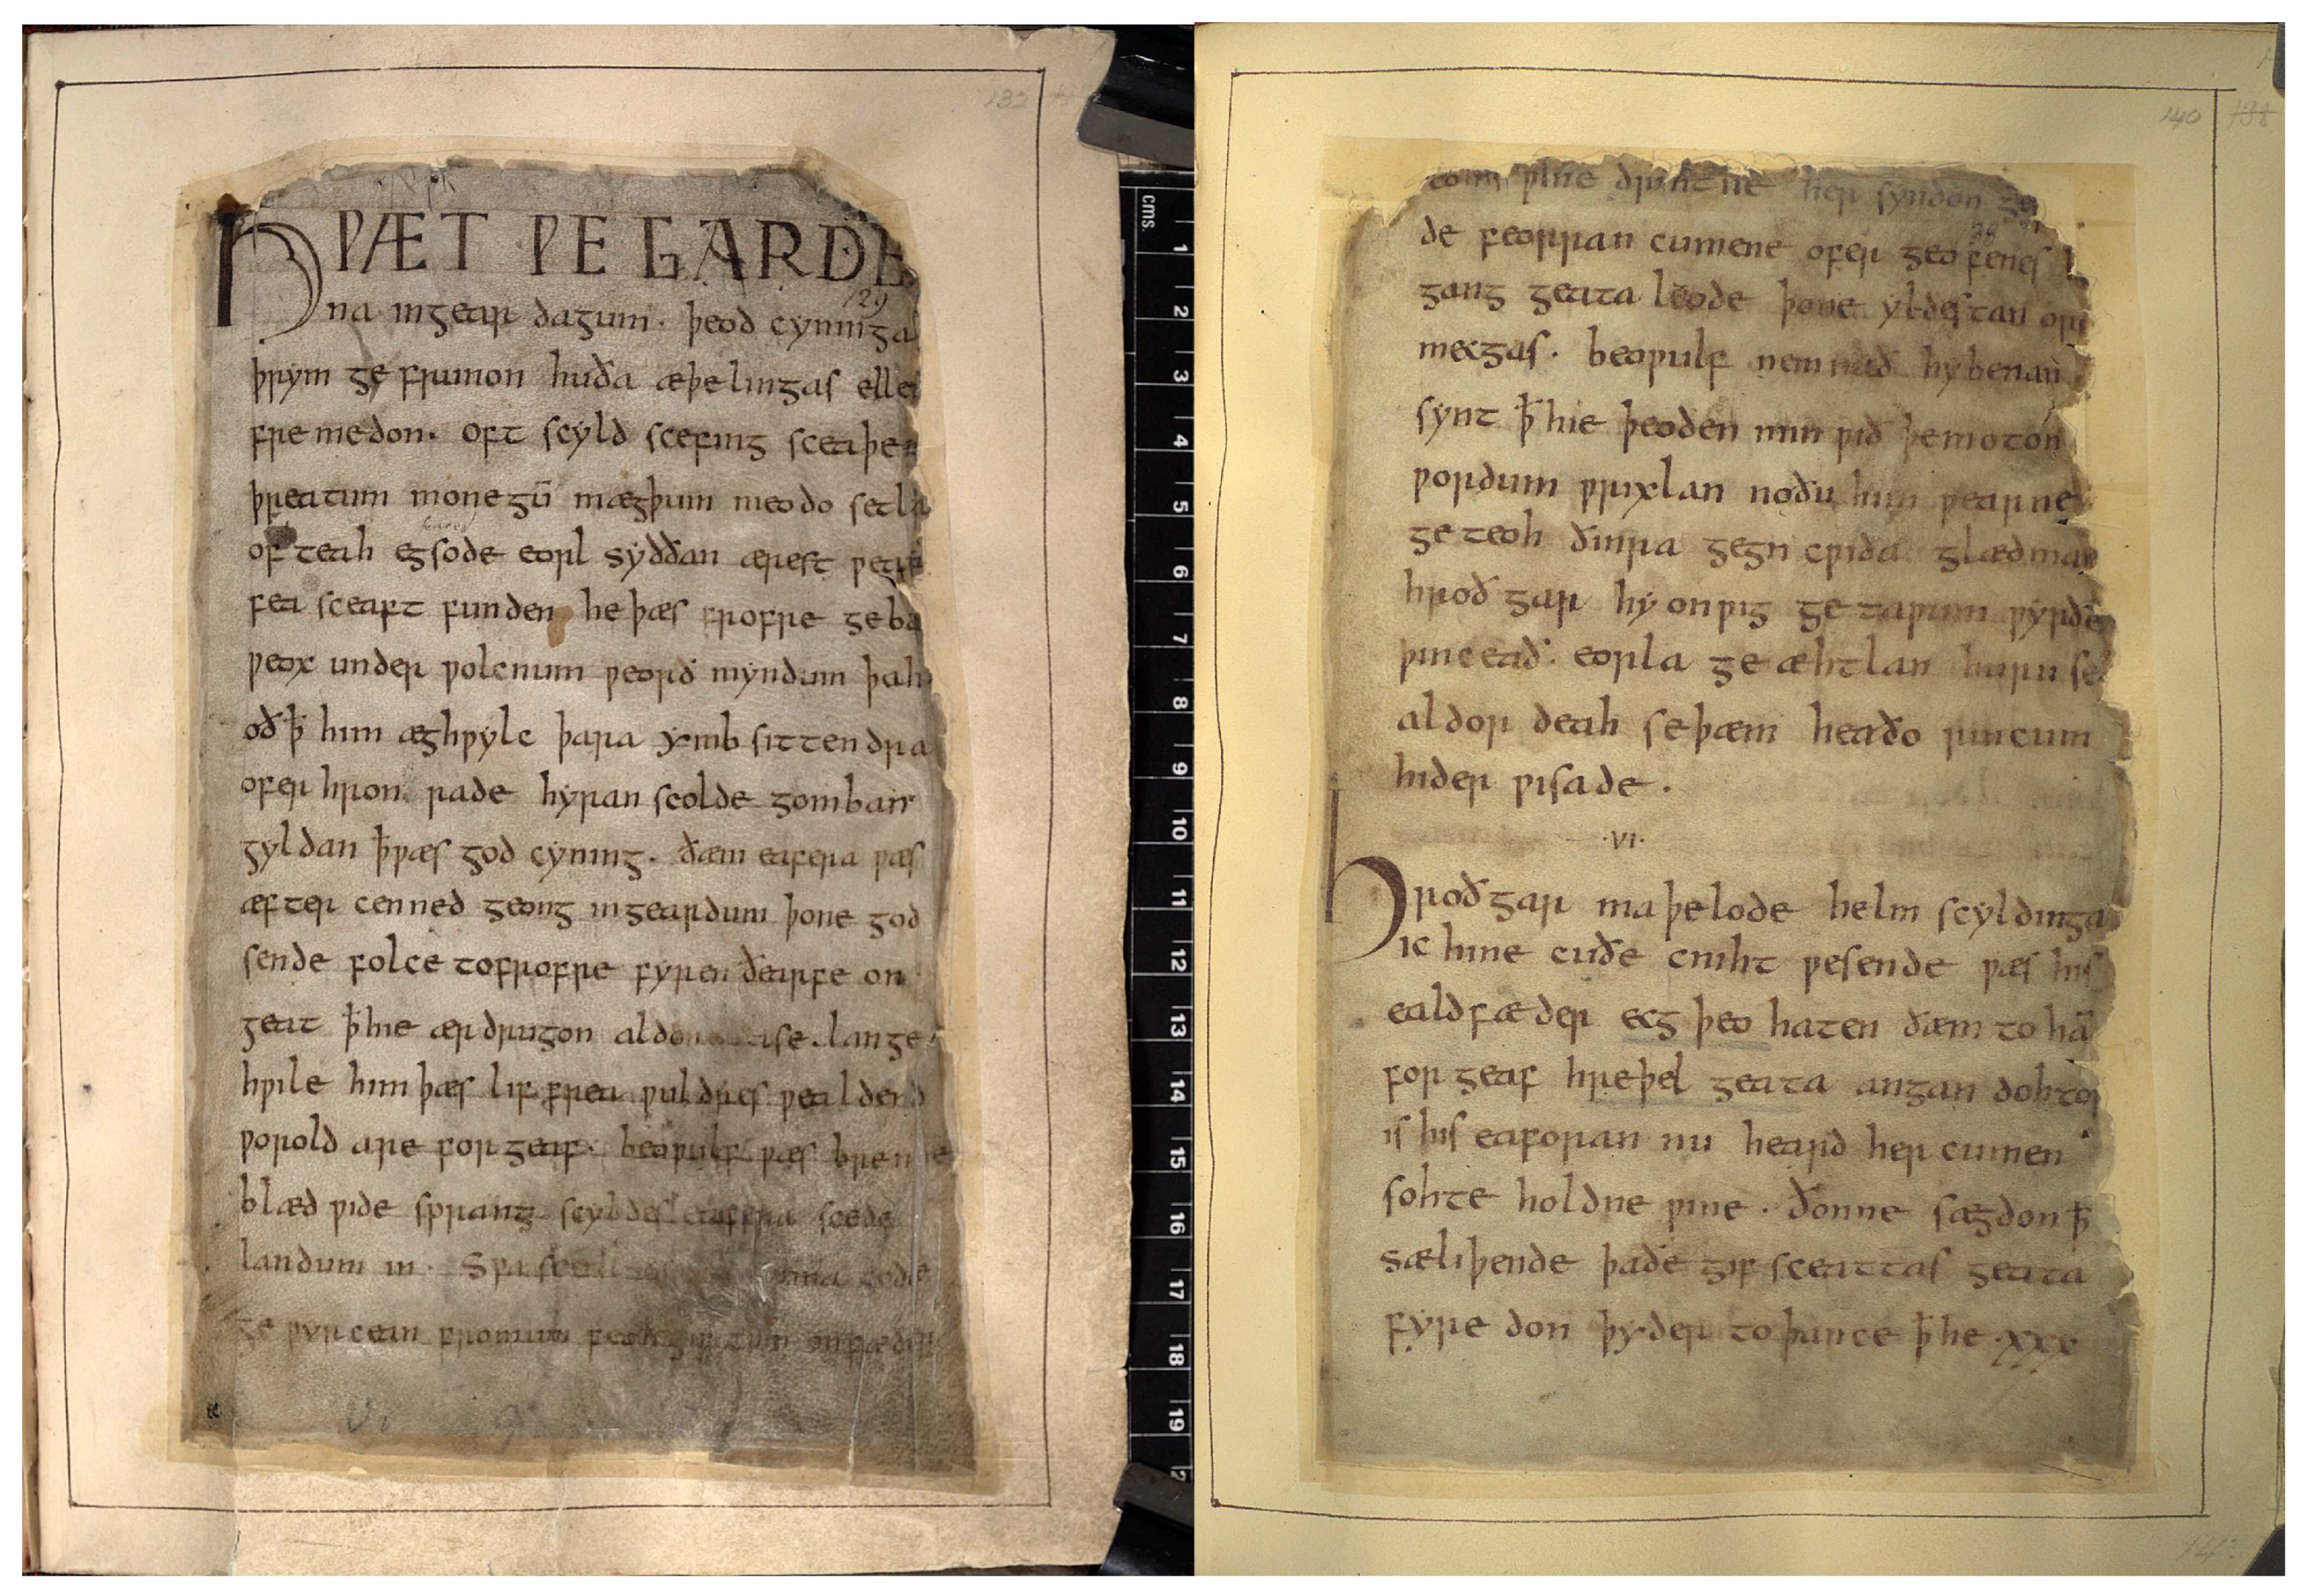 132
HǷÆT ǷE GARDE
na in gear dagum. þeod cyninga
þrym ge frunon huða æþelingas elle
fre medon. oft scyld scefing sceaþe
þreatum monegū mægþum meodo setla
of teah egsode eorl syððan ærest ƿear
fea sceaft funden he þæs frofre geba
ƿeox under ƿolcnum ƿeorð myndum þah
oð ꝥ him æghƿylc þara ymb sittendra
ofer hron rade hyran scolde gomban
gyldan ꝥ ƿæs god cyning. ðæm eafera ƿæs
æfter cenned geong in geardum þone god
sende folce tofrofre fyren ðearfe on
geat ꝥ hie ær drugon aldo ase. lange
hƿile him þæs lif frea ƿuldres ƿealdend
ƿorold are for geaf. beoƿulf ƿæs breme
blæd ƿide sprang scyldes eafera scede
landum in. Sƿa sceal ma gode
ge ƿyrcean fromum feoh giftum on fæder
cms.
1
2
3
4
5
6
7
8
9
10
11
12
13
14
15
16
17
18
19
140 138
ƿine drihtne her syndon ge
de feorran cumene ofer geofenes
gang geata leode þone yldestan oret
mecgas. beoƿulf nemnað hy benan
synt ꝥ hie þeoden min ƿið þe moton
ƿordum ƿrixlan no ðu him ƿearne
ge teoh ðinra gegn cƿida glædman
hroð gar hy on ƿig ge taƿum ƿyrðe
þinceað. eorla ge æhtlan huru se
aldor deah se þæm heaðo rincum
hider ƿisade.
.VI.
Hroð gar maþelode helm scyldinga
ic hine cuðe cniht ƿesende ƿæs his
ealdfæder ecg þeo haten ðæm to hā
for geaf hreþel geata angan dohtor
is his eaforan nu heard her cumen
sohte holdne ƿine. ðonne sægdon ꝥ
sæliþende þa ðe gif sceattas geata
fyredon þyder to þance ꝥ he .XXX